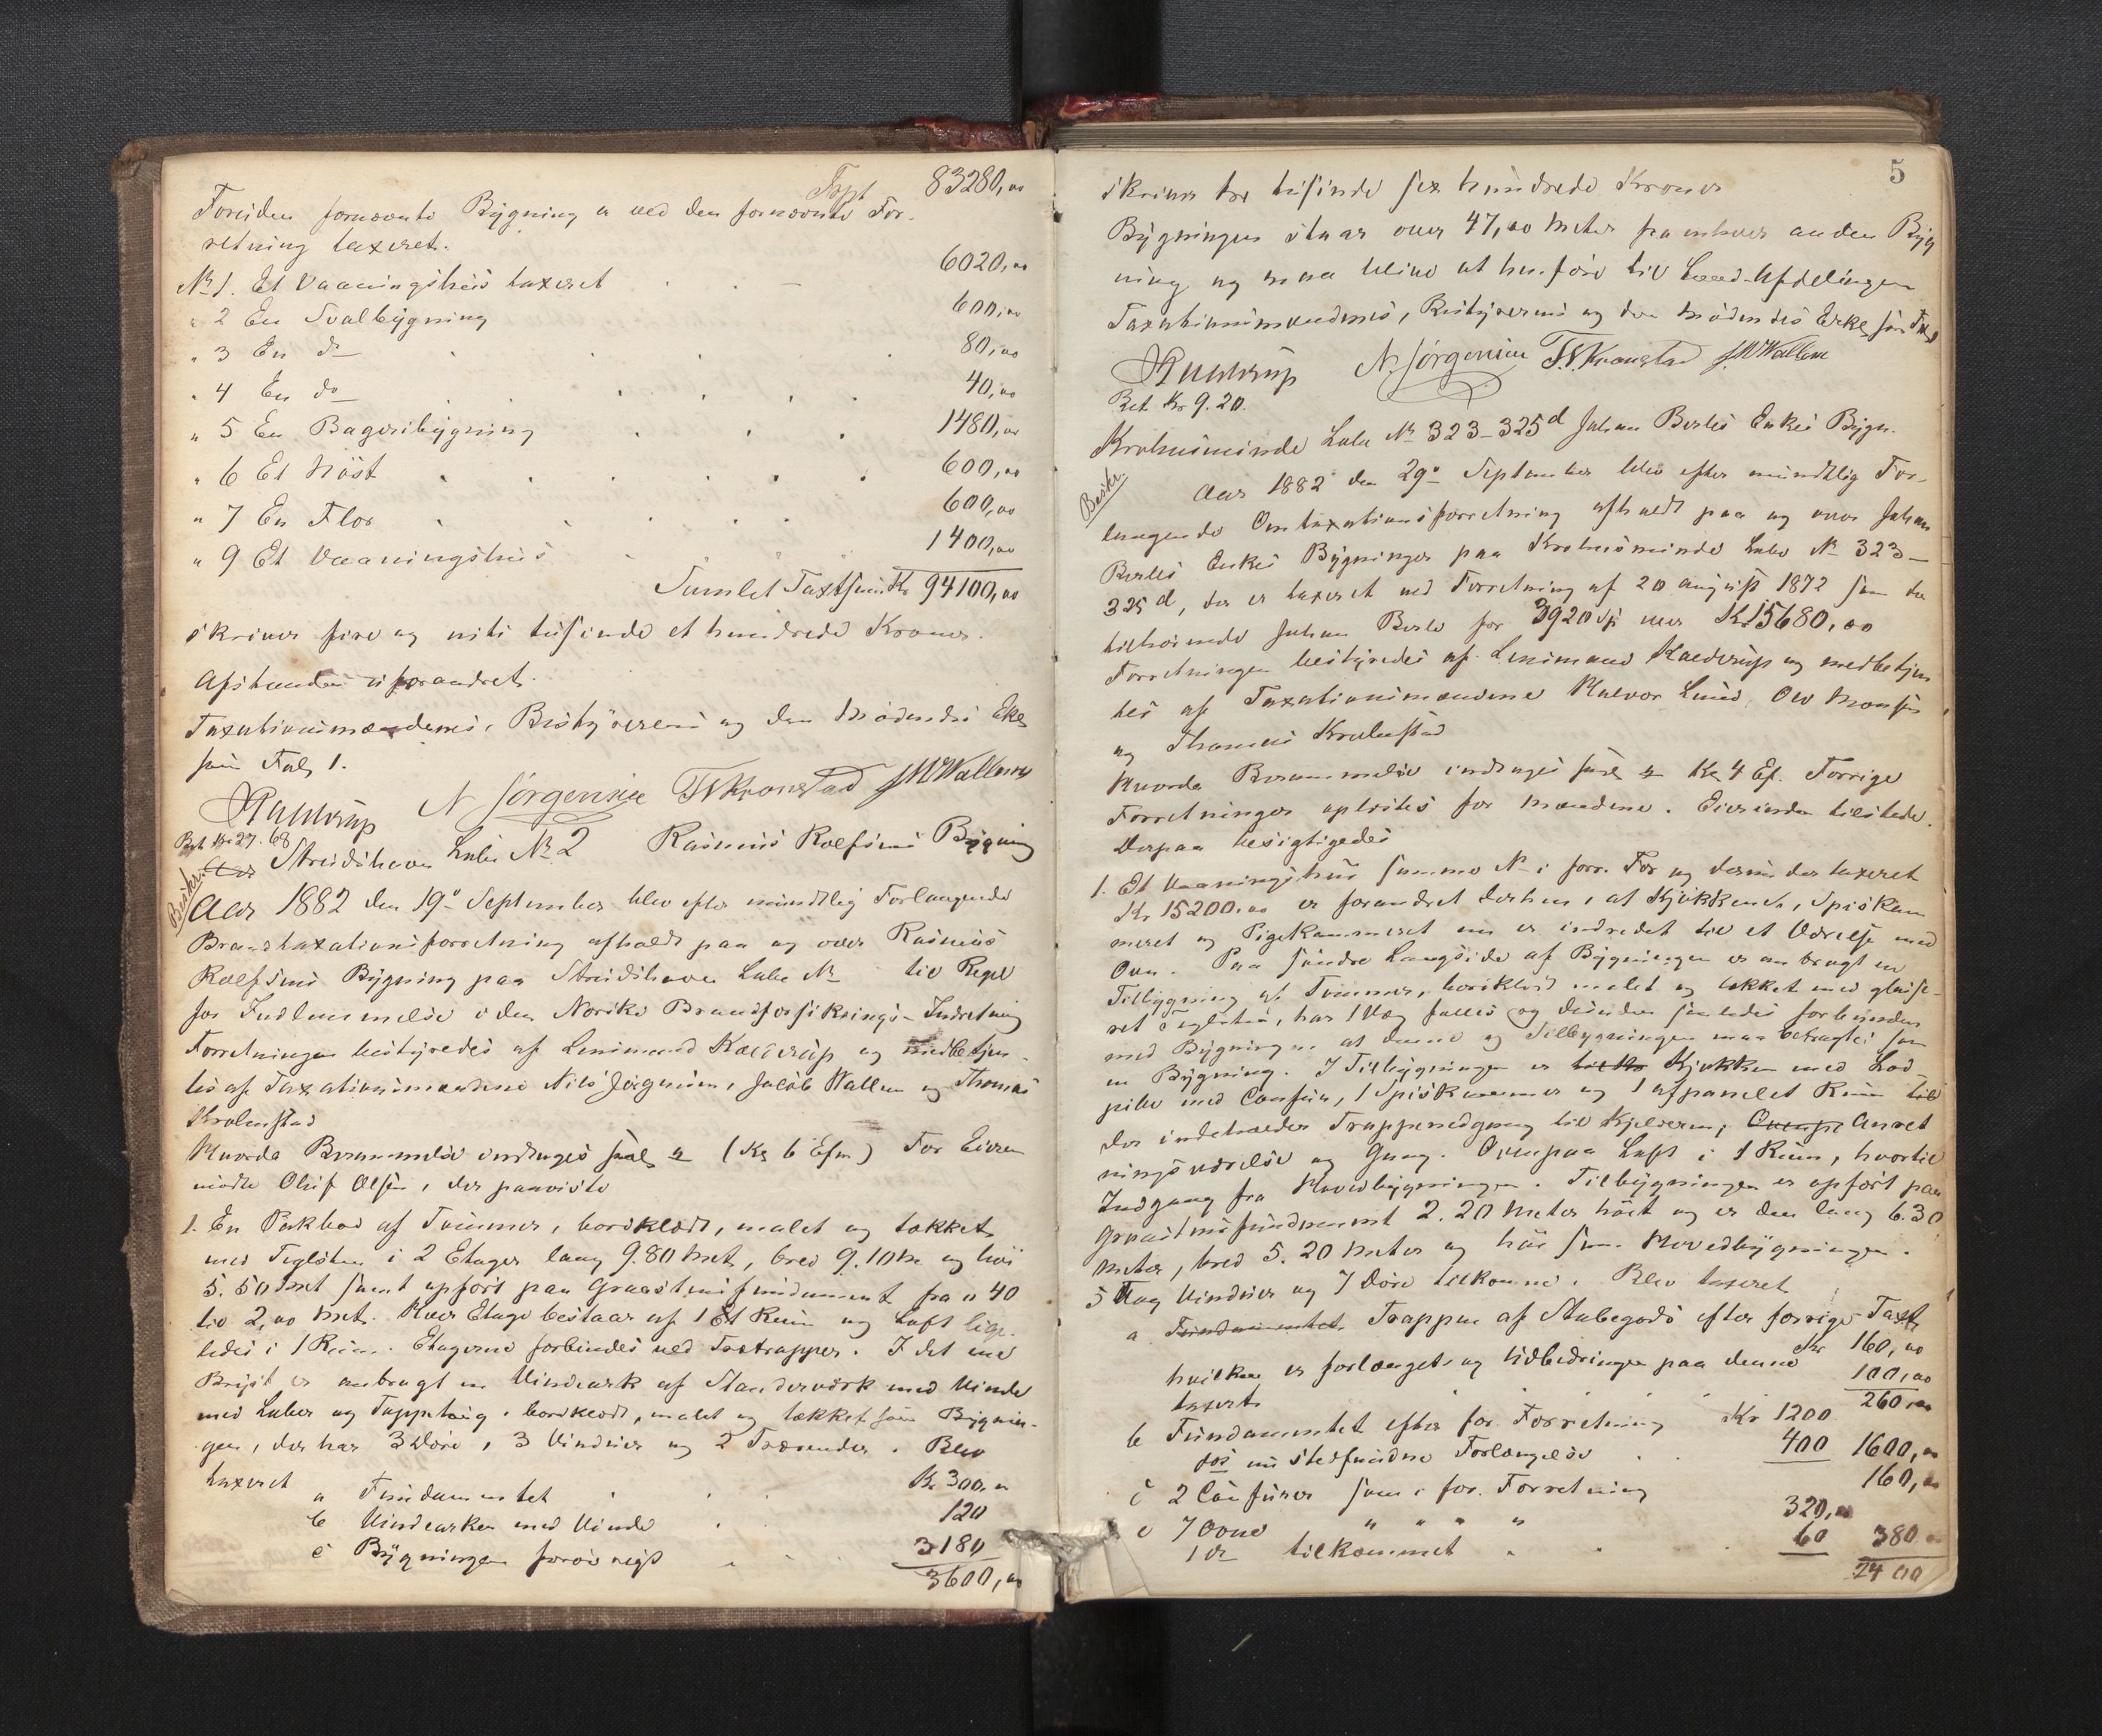 Tspt 83280,00
Foreiden fornævnte Bygning er ved den fornævnte For-
retning taxeret.
No 1. Et Vaaningshus taxeret 6020,00
" 2 En Svalbygning 600,00
" 3 En do 80,00
" 4 En do 40,00
" 5 En Bageribygning 1480,00
" 6 Et Nöst 600,00
" 7 En Flor 600,00
" 9 Et Vaaningshus 1400,00
Samlet Taxtsum Kr 94100,00
skriver fire og niti tusinde et hundrede Kroner.
Afstanden uforandret.
Taxationsmændenes, Bestyrerens og den Mödendes Erkl
som Fol, 1.
N Jörgensen T Kronstad J W Wallem
Bet Kr 27. 68
Strudshavn Lube No 2 Rasmus Rolfsens Bygning
Beskr.
Aar 1882 den 19de September blev efter mundtlig Forlangende
Brandtaxationsforretning afholdt paa og over Rasmus
Rolfsens Bygning paa Strudshavn Lube No til Regel
for Indlemmelse i den Norske Brandforsikrings-Indretning
Forretningen bestyredes af Lensmand Kalderup og medbetjen-
tes af Taxationsmændene Nils Jörgensen, Jakob Wallem og Thomas
Krohnstad
Hvorda Berammelse indtages saal. (Kr 6 Efm) For Eieren
mödte Oluf Olsen, der paaviste
1. En Pakbod af Tömmer, bordklædt, malet og takket
med Teglsten i 2 Etager lang 9.80 Met, bred 9.10 M og höi
5.50 Met samt opfört paa Graastensfundament fra 0 40
til 2,00 Met. Hver Etage bestaar af 1 Et Rum og Loft lige-
ledes i 1 Rum. Etagerne forbindes ved Trætrapper. I det ene
Bryst er anbragt en Vindeark af Standerværk med Vinde
med Luker og Tappetaug, bordklædt, malet og tækket som Bygnin-
gen, der har 3 Döre, 3 Vinduer og 2 Trærender. Blev
taxeret
a Fundamentet Kr 300,00
b Vindearken med Vinde 120
c Bygningen forövrigt 3180
3600,00
5
skriver tre tusinde sex hundrede Kroner
Bygningen staar over 47,00 Meter fra enhver anden Byg
ning og maa blive at henföre til Land-Afdelingen
Taxationsmændenes, Bestyrerens og den Mödendes Erkl som Fol,
N. Jörgensen T. Kronstad J W Wallem
Bet Kr 9.20.
Krohnsminde Lube No 323-325d Johan Berles Enkes Bygn.
Beskr.
Aar 1882 den 29de September blev efter mundtlig For-
langende Omtaxationsforretning afholdt paa og over Johan
Berles Enkes Bygninger paa Krohnsminde Lube No 323-
325d, der er taxeret ved Forretning af 20 august 1872 som da
tilhörende Johan Berle for 3920 Sp eller Kr 15680,00
Forretningen bestyredes af Lensmand Kalderup og medbetjen
tes af Taxationsmændene Halvor Lund, Ole Monsen
og Thomas Krohnstad
Hvorda Berammelse indtages saal. Kr 4 Ef. Forrige
Forretninger oplæstes for Mændene. Eierinden tilstede.
Derpaa besigtigedes
1. Et Vaaningshus samme No i forr. For og derved taxeret
Kr. 15200,00 er forandret derhen, at Kjökkenet, Spiskam
meret og Pigekammeret nu er indredet til et Værelse med
Ovn. Paa söndre Langside af Bygningen er anbragt en
Tilbygning af Tömmer, bordklædt malet og tækket med glase-
ret Teglsten, har 1 Væg fælles og desuden saaledes forbunden
med Bygningen at denne og Tilbygningen maa betragtes som
en Bygning. I Tilbygningen er Kjökken med Lod-
pibe med Comfur, 1 Spiskammer og 1 afpanelet Rum til
der indeholder Trappenedgang til Kjelderen, Anret
ningsværelse og Gang. Ovenpaa Loft i 1 Rum, hvortil
Indgang fra Hovedbygningen. Tilbygningen er opfört paa
Graastensfundament 2.20 Meter höit og er den lang 6.30
Meter, bred 5.20 Meter og höi som Hovedbygningen.
5 Fag Vinduer og 7 Döre tilkomne. Blev taxeret
a Fundamentet Trappen af Stabegods efter forrige Taxt
Kr 160,00
hvilken er forlænget og Udbedringen paa denne
taxert 100,00
260,00
b Fundamentet efter for. Forretning Kr 1200
for nu stedfundne Forlængelse 400 1600,00
c 2 Comfurer som i for. Forretning 160,00
d 7 Ovne " " " " 320,00
1 do tilkommet 60 380,00
2400